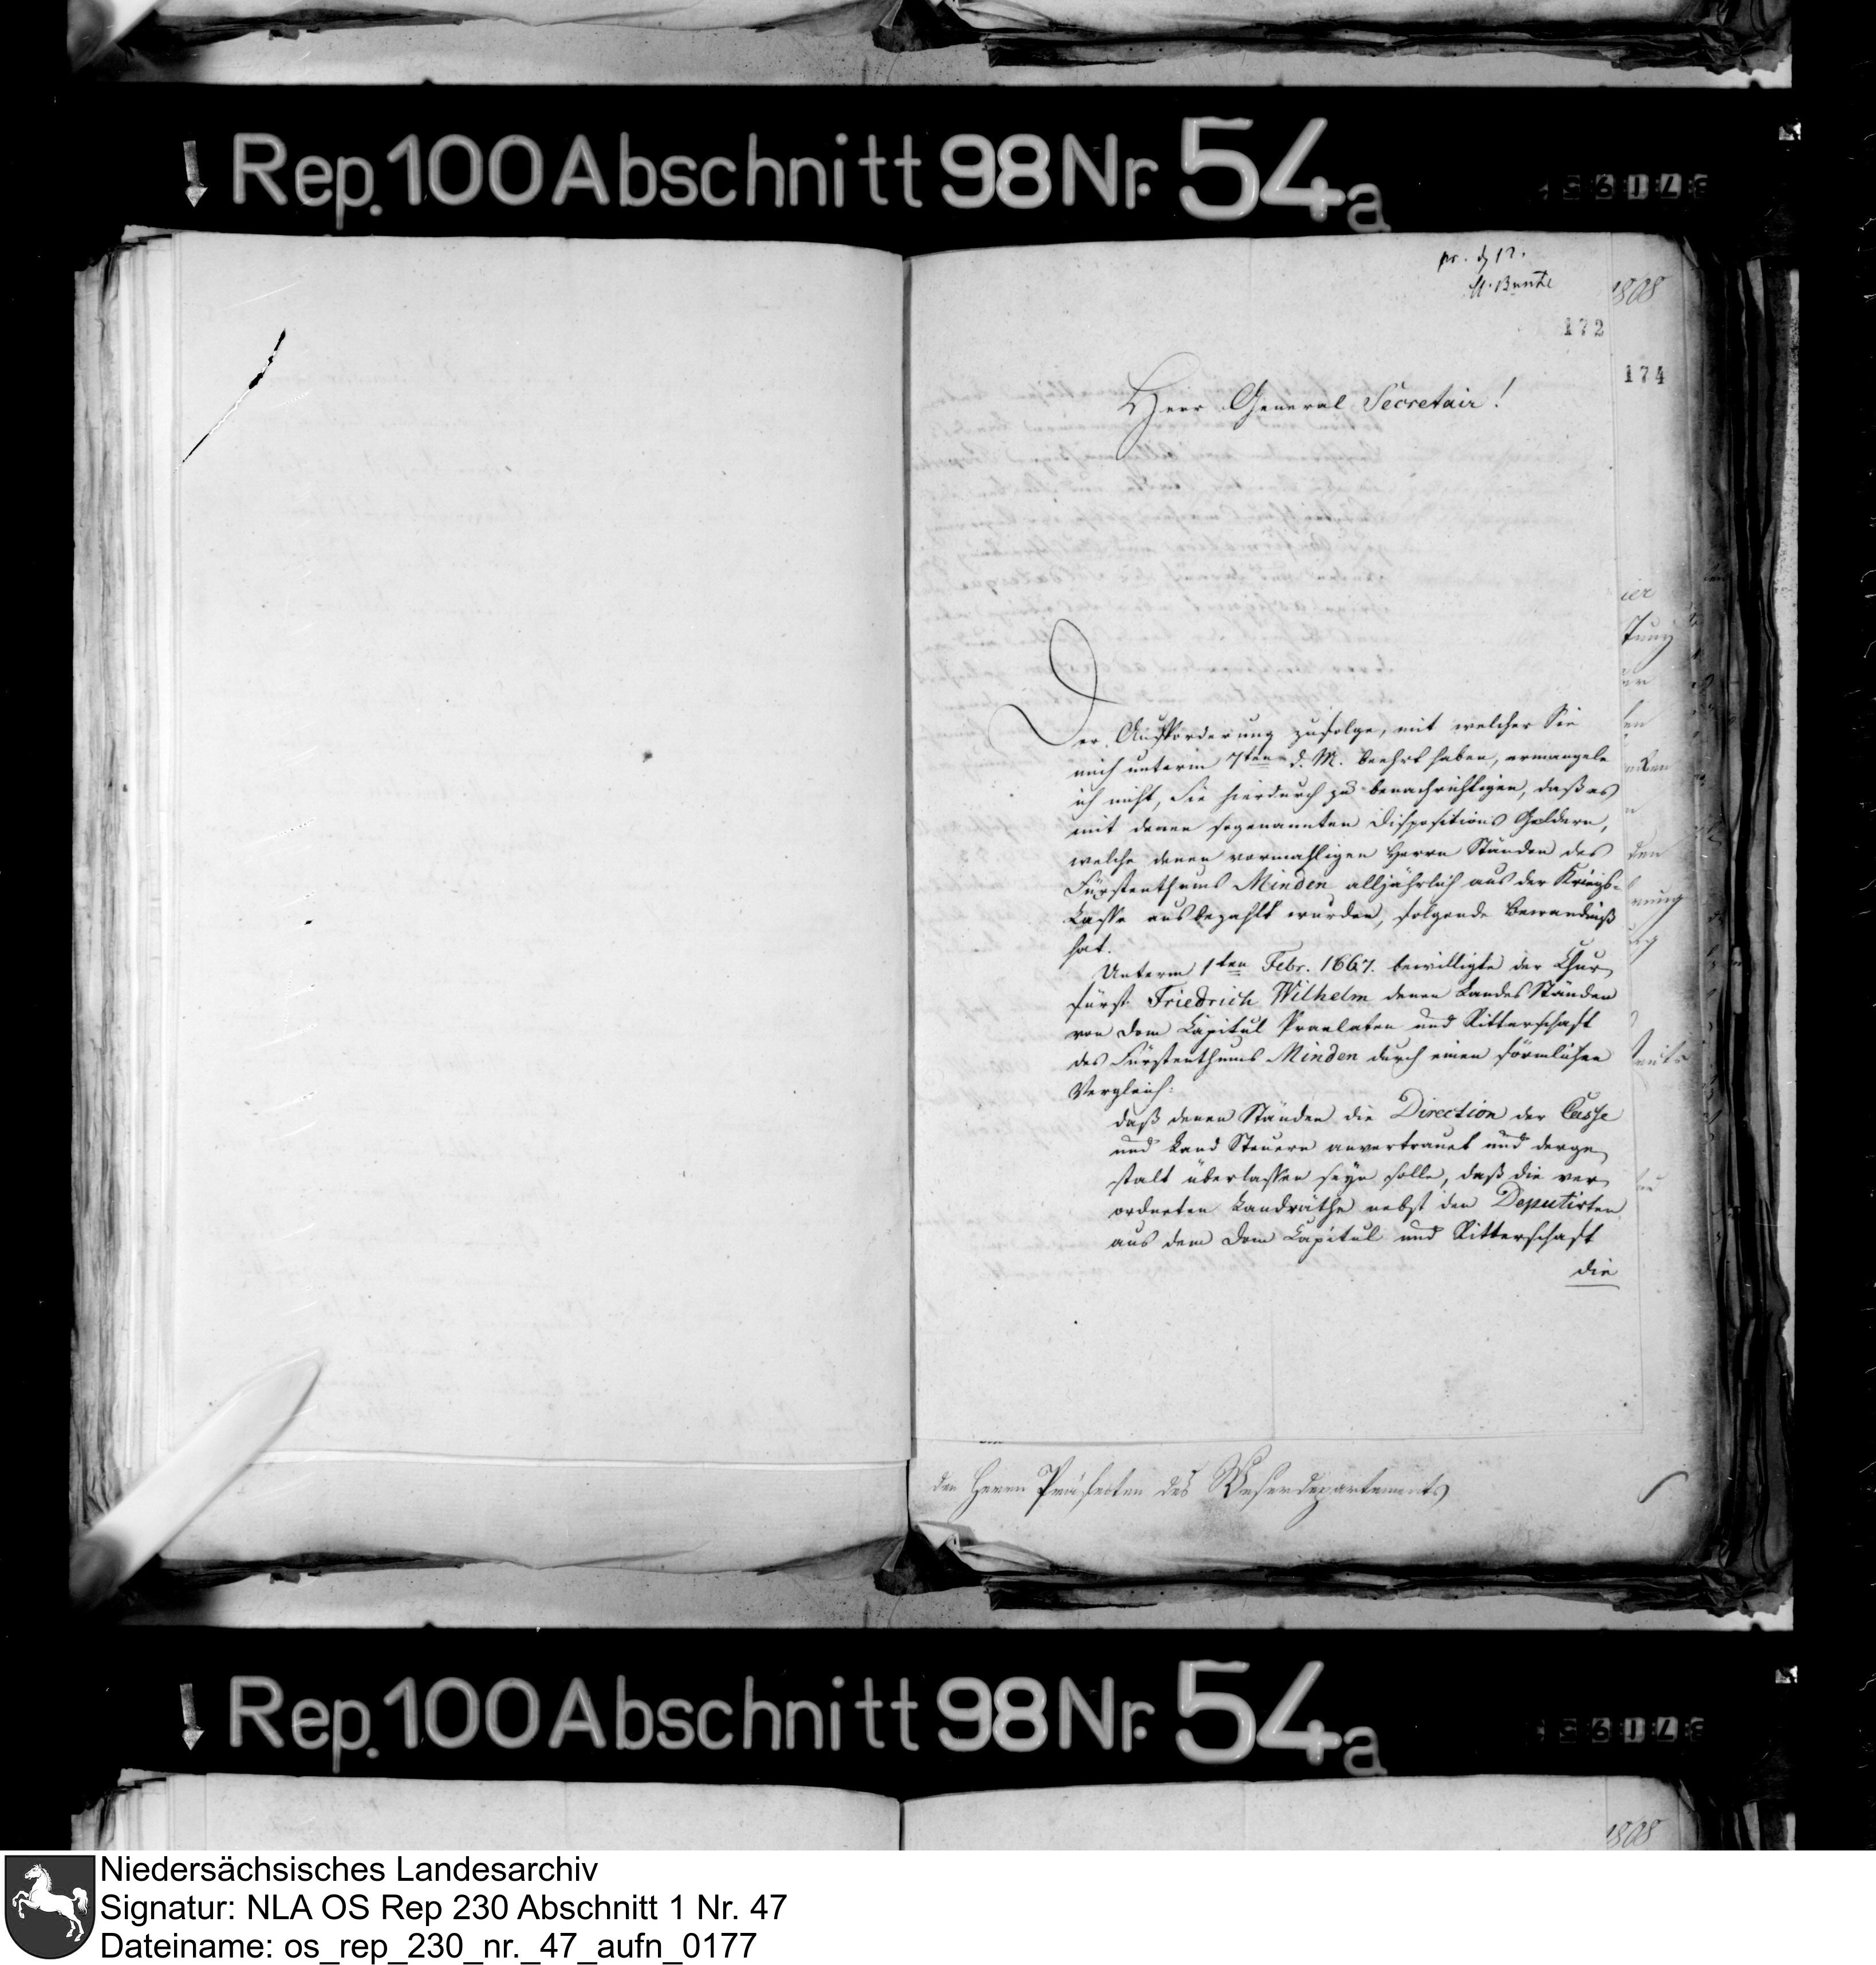 Rep. 100 Abschnitt 98 Nr. 54a
pr. d 12.
H. Bünte
1808
172
174
Herr General Secretair!
Der Aufforderung zufolge, mit welcher Sie
mich unterm 7ten d. M. beehrt haben, ermangele
ich nicht, Sie hierdurch zu benachrichtigen, daß es
mit denen sogenannten Dispositions Geldern,
welche denen vormahligen Herrn Ständen des
Fürstenthums Minden alljährlich aus der Kriegs-
Casse ausbezahlt wurden, folgende Bewandniß
hat.
Unterm 1ten Febr. 1667. bewilligte der Chur
fürst Friedrich Wilhelm denen Landes Ständen
von Dom Capitul Praelaten und Ritterschaft
des Fürstenthums Minden durch einen förmlichen
Vergleich:
daß denen Ständen die Direction der Casse
und Land Steuern anvertrauet und derge
stalt überlassen seyn solle, daß die ver
ordneten Landräthe nebst den Deputirten
aus dem Dom Capitul und Ritterschaft
die
den Herrn Präfecten des Weserdepartements
Rep. 100 Abschnitt 98 Nr. 54a
1808
Niedersächsisches Landesarchiv
Signatur: NLA OS Rep 230 Abschnitt 1 Nr. 47
Dateiname: os_rep_230_nr._47_aufn_0177